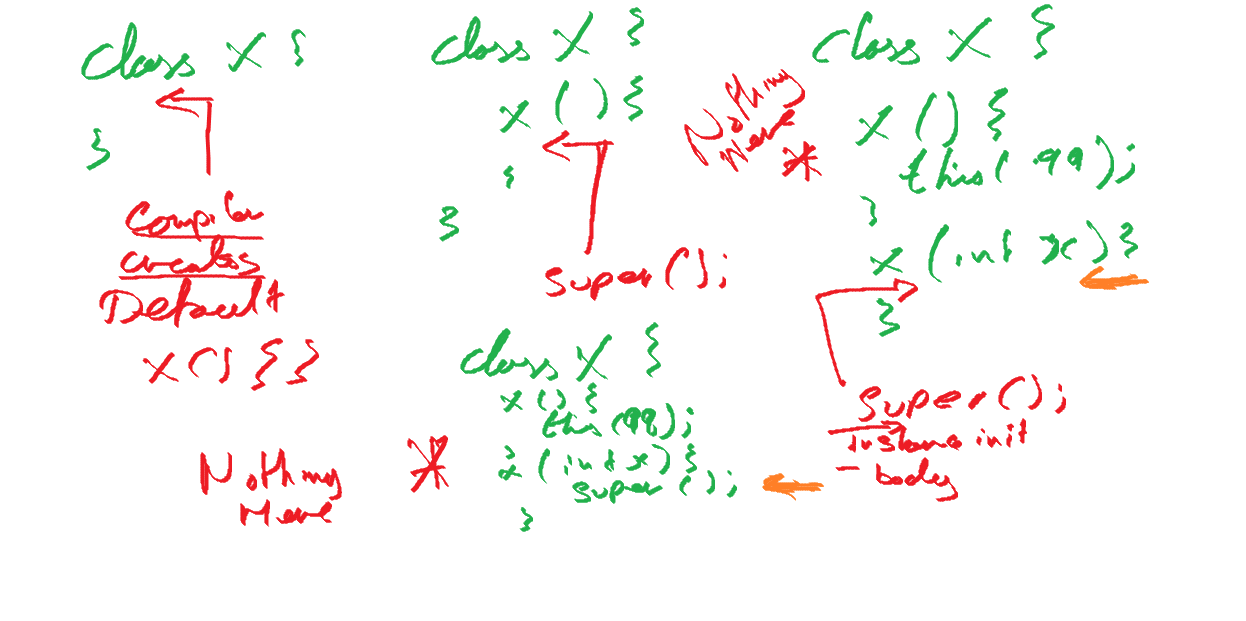 class X {
}
Compiler
creates
Default
X() { }
class X {
X() {
}
}
super();
Nothing
Here
*
class X {
X() {
this(99);
}
X (int x) {
}
super();
Instance init
- body
class X {
X() {
this(99);
}
X (int x) {
super();
}
Nothing
Here
*